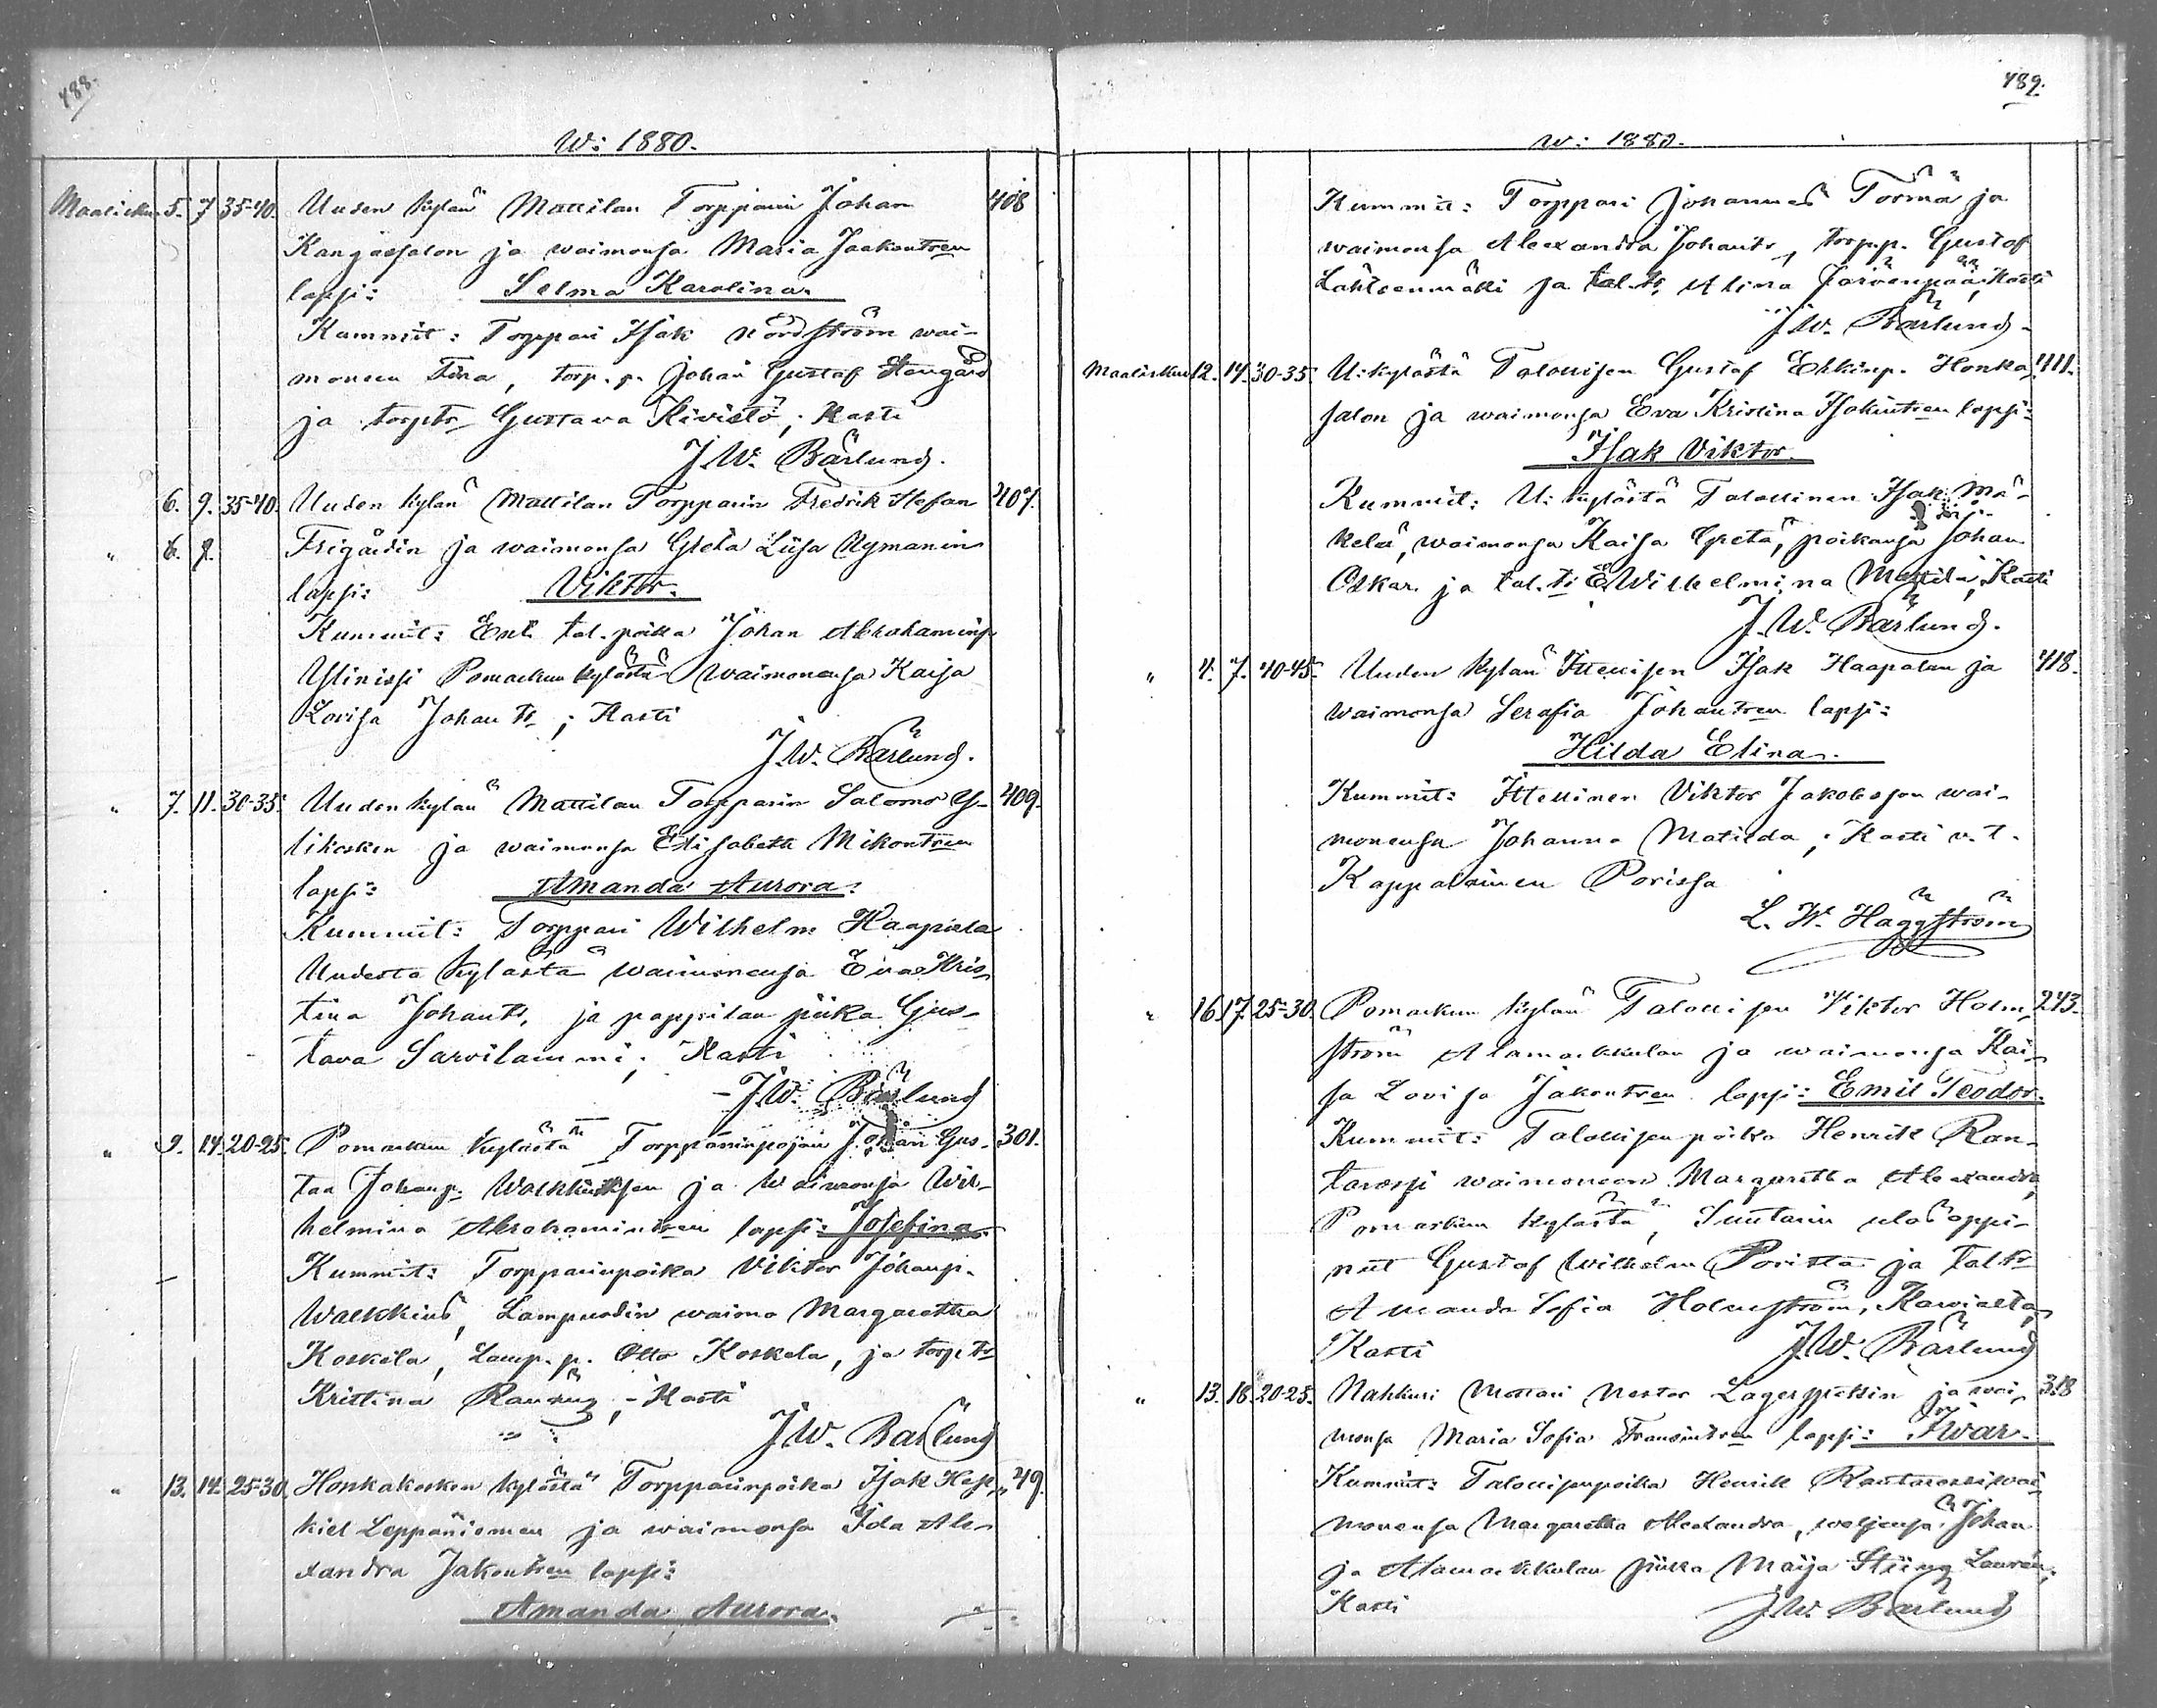 488.
W: 1880.
Maalisku. 5. 7 35-40. Uuden kylän Mattilan Torpparin Johan 408
Kangassalon ja waimonsa Maria Jaakontren
lapsi: Selma Karolina.
Kummit: Torppari Isak Nordström wai-
moneen Fina, torp. p. Johan Gustaf Stengård
ja torptr Gustava Kivistö; Kasti
J. W. Bärlund.
6. 9. 35-40 Uuden kylän Mattilan Torpparin Fredrik Stefan 407.
" 6. 9. Frigårdin ja waimonsa Greta Liisa Nymanin
lapsi: Viktor.
Kummit: Ent. tal. poika Johan Abrahaminp.
Ylinissi Pomarkun kylästä waimonensa Kaisa
Lovisa Johan tr; Kasti
J. W. Bärlund.
" 7. 11. 30-35. Uuden kylän Mattilan Torpparin Salomo Y- 409.
likosken ja waimonsa Elisabeth Mikontren
lapsi: Amanda Aurora.
Kummit: Torppari Wilhelm Haapala
Uudesta kylästä waimonensa Eva Kris-
tina Johantr, ja pappilan piika Gus-
tava Sarvilammi; Kasti
- J. W. Bärlund
" 9. 14. 20-25. Pomarkun kylästä Torpparinpojan Johan Gus- 301.
taa Johanp. Walkkisen ja waimonsa Wil-
helmina Abrahamintren lapsi: Josefina
Kummit: Torpparinpoika Viktor Johanp.
Walkkins, Lampuodin waimo Margaretha
Koskela, Lamp. p. Otto Koskela, ja torp. tr
Kristina; - Kasti
J. W. Bärlund
" 13. 14. 25-30. Honkakosken kylästä Torpparinpoika Isak Hese- 49.
kiel Leppäniemen ja waimonsa Ida Ale-
xandra Jakontren lapsi:
Amanda Aurora.
489.
W: 1880.
Kummit: Torppari Johannes Törmä ja
waimonsa Alexandra Johantr, torp. p. Gustaf
Lähteenmäki ja tal. tr. Alina Järvenpää; Kasti
J. W. Bärlund.
Maalisku 12. 14. 30-35. U: kylästä Talollisen Gustaf Erkinp. Honka- 411.
salon ja waimonsa Eva Kristina Isakintren lapsi:
Isak Viktor.
Kummit: U: kylästä Talollinen Isak Mä-
kelä, waimonsa Kaisa Greta, poikansa Johan
Oskar ja tal. tr E. Wilhelmina Mattila; Kasti
J. W. Bärlund.
" 4. 7. 40-45. Uuden kylän Itellisen Isak Haapalan ja 418.
waimonsa Serafia Johantren lapsi:
Hilda Elina.
Kummit: Itellinen Viktor Jakobsson wai-
monensa Johanna Matilda; Kasti v. t.
Kappalainen Porissa
L. W. Häggström
" 16. 17. 25-30. Pomarkun kylän Talollisen Viktor Holm- 243.
ström Alamarkkulan ja waimonsa Kai-
sa Lovisa Jakontren lapsi: Emil Teodor.
Kummit: Talollisenpoika Henrik Ran-
tarossi waimoneen Margaretha Alexandra,
Pomarkun kylästä, Suutarin ulosoppi-
nut Gustaf Wilhelm Porista ja Taltr
Amanda Sofia Holmström,
Kasti J. W. Bärlund
" 13. 18. 20-25. Nahkuri Nestor ja wai- 318
monsa Maria Sofia Fransintren lapsi: Iwar.
Kummit: Talollisenpoika Henrik Rantarossi wai-
monensa Margaretha Alexandra, weljensä Johan
ja Alamarkkulan piika Maija Stiina
Kasti J. W. Bärlund